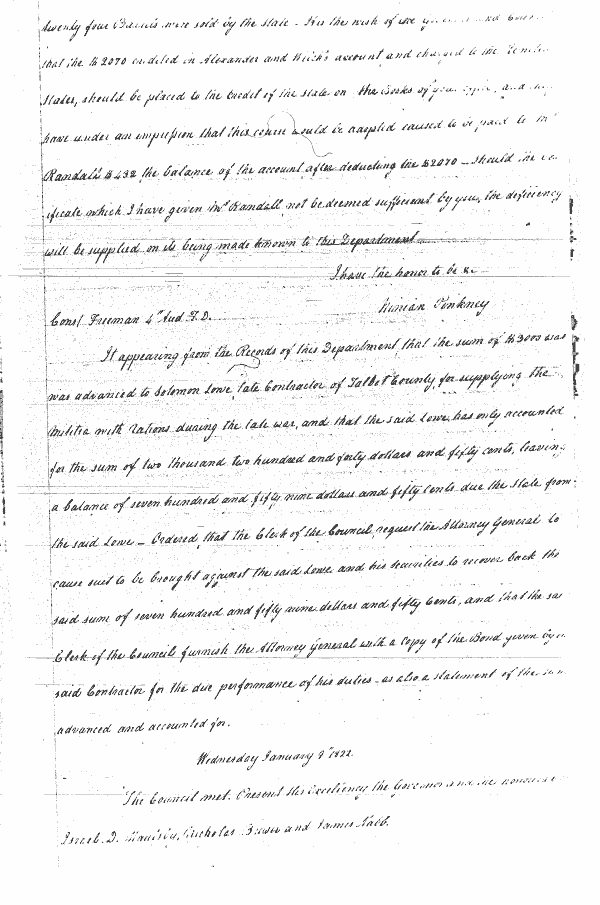 twenty four Barrels were sold by the state - It is the wish of the and
that the $2070 credited in Alexander and account and charged to the United
States, should be placed to the credit of the state on the Books of your and
have under an impression that this course would be adopted caused to be paid to Mr
Randall $432 the balance of the account after deducting the $2070 - should the
ificate which I have given Mr Randall not be deemed sufficient by you, the deficiency
will be supplied on its being made known to this Department
I have the honor to be &c
Ninian Pinkney
Const Freeman 4th Aud T. D.
It appearing from the Records of this Department that the sum of $3000 was
was advanced to Solomon Lowe, late Contractor of Talbot County, for supplying the
Militia with Rations during the late war, and that the said Lowe, has only accounted
for the sum of two thousand two hundred and forty dollars and fifty cents, leaving
a balance of seven hundred and fifty nine dollars and fifty Cents due the state from
the said Lowe - Ordered, that the Clerk of the Council, request the Attorney General to
cause suit to be brought against the said Lowe and his securities to recover back the
said sum of seven hundred and fifty nine dollars and fifty Cents, and that the
Clerk of the Council furnish the Attorney General with a copy of the Bond given by
said Contractor for the due performance of his duties - as also a statement of the
advanced and accounted for.
Wednesday January 1822
The Council met. Present His Excellency the Governor and the
Israel. D. Maulsby, Nicholas Brewer and James Nabb.